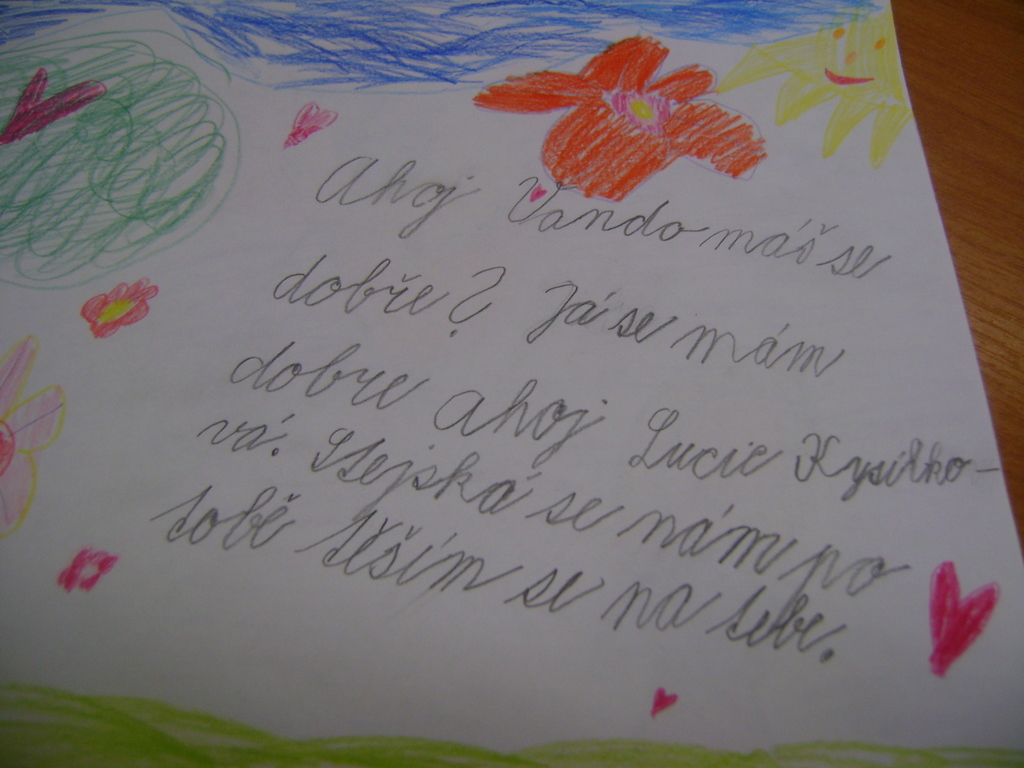 Ahoj Vando máš se
dobře? Já se mám
dobre ahoj Lucie Kysilko-
vá. Stejská se nám po
tobě těším se na tebe.